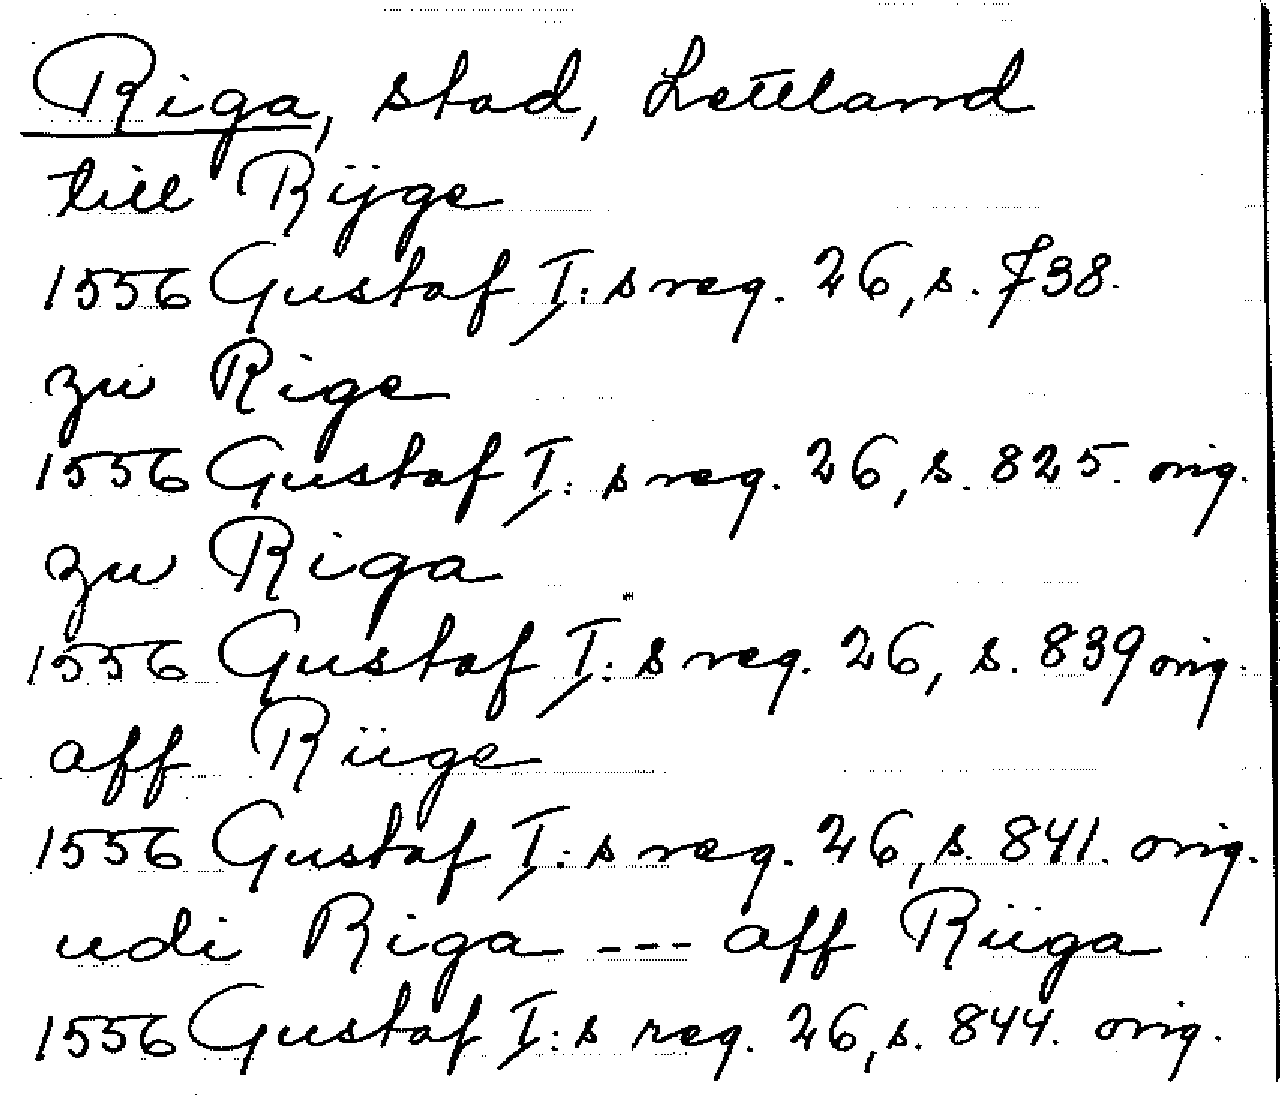 Riga, stad, Lettland
till Rÿge
1556 Gustaf I:s reg. 26, s. 738.
zu Rige
1556 Gustaf I:s reg. 26, s. 825. orig.
zu Riga
1556 Gustaf I:s reg. 26, s. 839 orig.
aff Riige
1556 Gustaf I:s reg. 26, s. 841. orig.
udi Riga --- aff Riiga
1556 Gustaf I:s reg. 26, s. 844. orig.